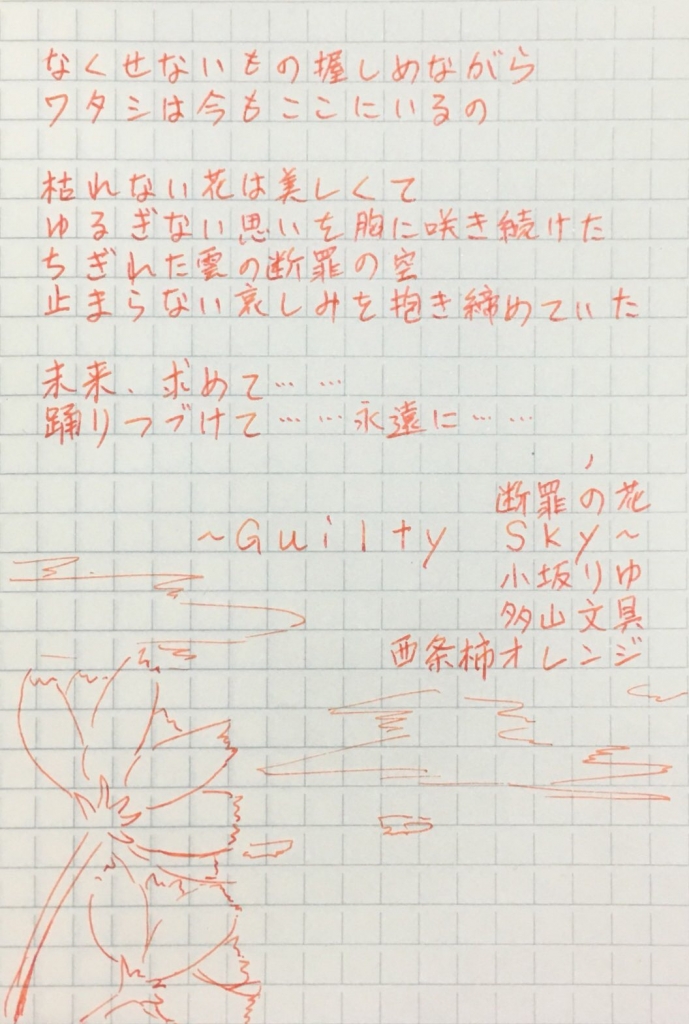 なくせないもの握しめながら
ワタシは今もここにいるの
枯れない花は美しくて
ゆるぎない思いを胸に咲き続けた
ちぎれた雲の断罪の空
止まらない哀しみを抱き締めていた
未来、求めて……
踊りつづけて……永遠に……
断罪の花
~Guilty Sky~
小坂りゆ
多山文具
西条柿オレンジ